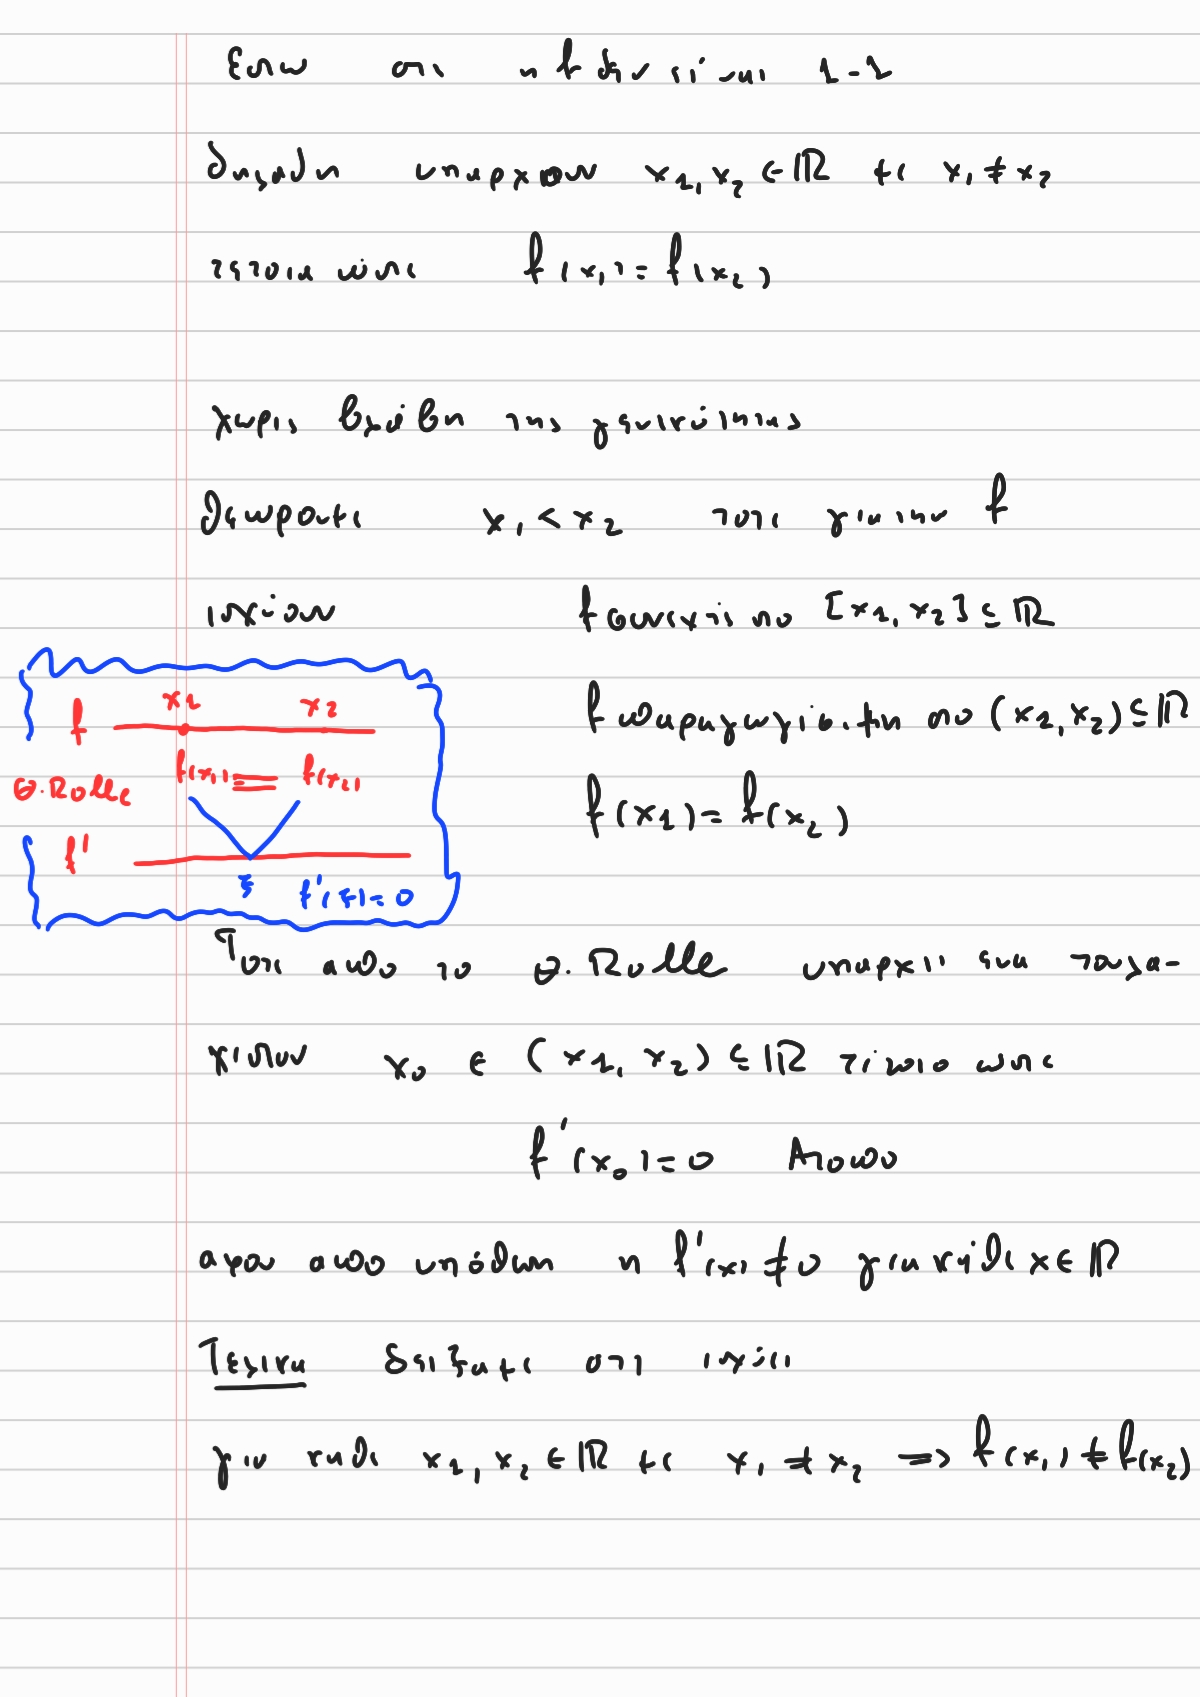 Εστω οτι η f δεν είναι 1-1
δηλαδη υπαρχουν x₁, x₂ ∈ ℝ με x₁ ≠ x₂
τετοια ώστε f(x₁) = f(x₂)
χωρις βλάβη της γενικότητας
θεωρουμε x₁ < x₂ τοτε για την f
ισχύουν f συνεχής στο [x₁, x₂] ⊆ ℝ
f παραγωγίσιμη στο (x₁, x₂) ⊆ ℝ
f(x₁) = f(x₂)
f x₁ x₂
f(x₁) = f(x₂)
Θ. Rolle
f'
ξ f'(ξ) = 0
Τοτε απο το Θ. Rolle υπαρχει ενα τουλα-
χιστον x₀ ∈ (x₁, x₂) ⊆ ℝ τέτοιο ωστε
f'(x₀) = 0 Ατοπο
αφου απο υπόθεση η f'(x) ≠ 0 για κάθε x ∈ ℝ
Τελικα δειξαμε οτι ισχύει
για καθε x₁, x₂ ∈ ℝ με x₁ ≠ x₂ ⇒ f(x₁) ≠ f(x₂)